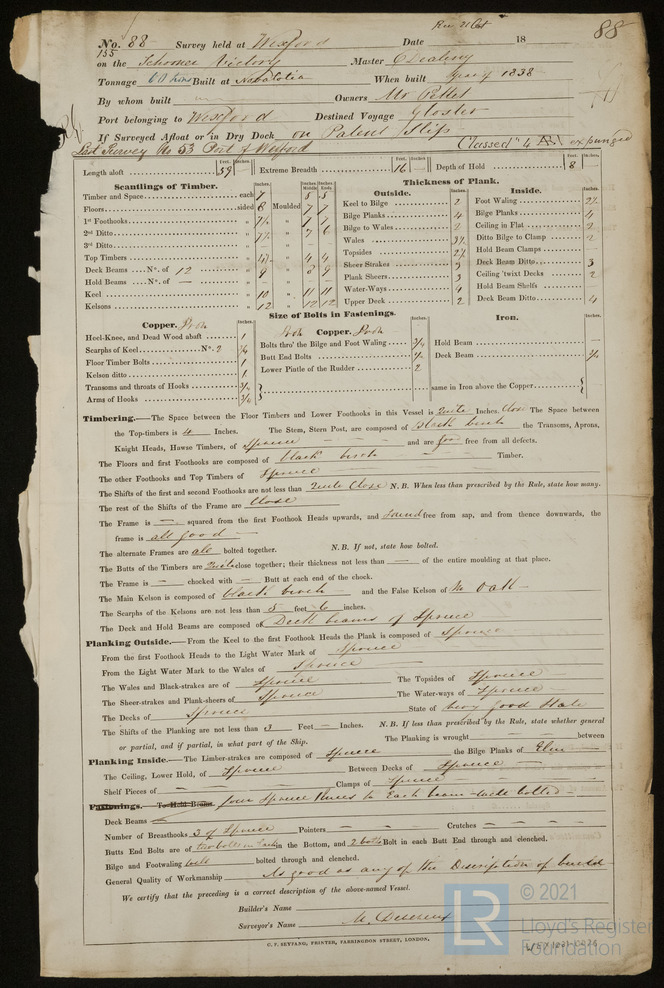 Rec 21 Oct
88
No. 88 Survey held at Wexford Date 18
155
on the Schooner Victory Master
Tonnage 60 tons Built at When built year of 1838
By whom built — Owners Mr
Port belonging to Wexford Destined Voyage Gloster
If Surveyed Afloat or in Dry Dock on Patent Slip
Last Survey No 53 Port of Wexford Classed 4 expunged
Length aloft 59 — Extreme Breadth 16 — Depth of Hold 8
Feet. Inches. Feet. Inches. Feet. Inches.
Scantlings of Timber.
Inches. Inches Middle Inches Ends
Timber and Space each 7 5 5
Floors sided 8 Moulded 7 7
1st Foothooks " 7½ " 7 7
2nd Ditto " 7½ " 7 6
3rd Ditto "
Top Timbers " " 4 4
Deck Beams No. of 12 " 9 " 8 9
Hold Beams No. of — " — "
Keel " 10 " 11 11
Kelsons " 12 " 12 12
Thickness of Plank.
Outside. Inches.
Keel to Bilge 2
Bilge Planks 4
Bilge to Wales 2
Wales 3½
Topsides 2½
Sheer Strakes 3
Plank Sheers 3
Water-Ways 4
Upper Deck 2
Inside. Inches.
Foot Waling 2½
Bilge Planks 4
Ceiling in Flat 2
Ditto Bilge to Clamp 2
Hold Beam Clamps —
Deck Beam Ditto 3
Ceiling 'twixt Decks 2
Hold Beam Shelfs
Deck Beam Ditto 4
Size of Bolts in Fastenings.
Copper. Inches.
Heel-Knee, and Dead Wood abaft 1
Scarphs of Keel No. 2 ¾
Floor Timber Bolts 1
Kelson ditto 1
Transoms and throats of Hooks ¾
Arms of Hooks ¾
Copper. Inches.
Bolts thro' the Bilge and Foot Waling ¾
Butt End Bolts
Lower Pintle of the Rudder 2
Iron. Inches.
Hold Beam —
Deck Beam ¾
same in Iron above the Copper
Timbering.—The Space between the Floor Timbers and Lower Foothooks in this Vessel is quite Inches. Close The Space between
the Top-timbers is 4 Inches. The Stem, Stern Post, are composed of black birch the Transoms, Aprons,
Knight Heads, Hawse Timbers, of Spruce — — — and are free from all defects.
The Floors and first Foothooks are composed of black birch — — Timber.
The other Foothooks and Top Timbers of Spruce
The Shifts of the first and second Foothooks are not less than quite Close N.B. When less than prescribed by the Rule, state how many.
The rest of the Shifts of the Frame are Close
The Frame is — squared from the first Foothook Heads upwards, and Sound free from sap, and from thence downwards, the
frame is all good —
The alternate Frames are all bolted together. N.B. If not, state how bolted.
The Butts of the Timbers are quite close together; their thickness not less than — of the entire moulding at that place.
The Frame is — chocked with — Butt at each end of the chock.
The Main Kelson is composed of black birch and the False Kelson of Oak
The Scarphs of the Kelsons are not less than 5 feet 6 inches.
The Deck and Hold Beams are composed of Deck beams of Spruce
Planking Outside.—From the Keel to the first Foothook Heads the Plank is composed of Spruce
From the first Foothook Heads to the Light Water Mark of Spruce
From the Light Water Mark to the Wales of Spruce
The Wales and Black-strakes are of Spruce The Topsides of Spruce
The Sheer-strakes and Plank-sheers of Spruce The Water-ways of Spruce
The Decks of Spruce State of Very good State
The Shifts of the Planking are not less than 3 Feet — Inches. N.B. If less than prescribed by the Rule, state whether general
or partial, and if partial, in what part of the Ship. The Planking is wrought — between
Planking Inside.—The Limber-strakes are composed of Spruce the Bilge Planks of Elm
The Ceiling, Lower Hold, of Spruce Between Decks of Spruce
Shelf Pieces of — — Clamps of Spruce
Fastenings.—To Hold Beams four Spruce Knees to Each beam well bolted —
Deck Beams
Number of Breasthooks 3 of Spruce Pointers — — Crutches — — —
Butts End Bolts are of two bolts in Each in the Bottom, and 2 bolts Bolt in each Butt End through and clenched.
Bilge and Footwaling both bolted through and clenched.
General Quality of Workmanship As good as any of the Description of build
We certify that the preceding is a correct description of the above-named Vessel.
Builder's Name
Surveyor's Name M. Devereux
C. F. SEYFANG, PRINTER, FARRINGDON STREET, LONDON.
LR
© 2021
Lloyd's Register
Foundation